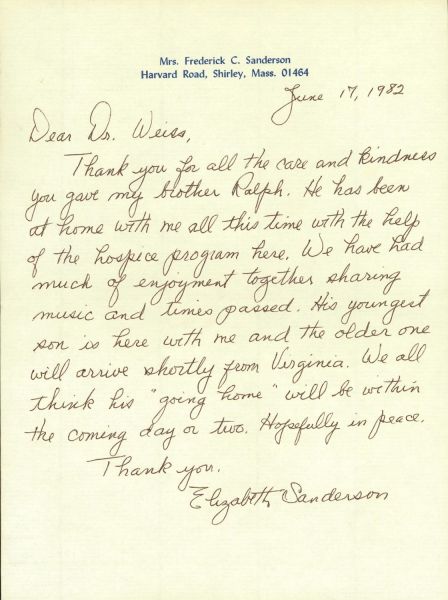 Mrs. Frederick C. Sanderson
Harvard Road, Shirley, Mass. 01464
June 17, 1982
Dear Dr. Weiss,
Thank you for all the care and kindness
you gave my brother Ralph. He has been
at home with me all this time with the help
of the hospice program here. We have had
much of enjoyment together sharing
music and times passed. His youngest
son is here with me and the older one
will arrive shortly from Virginia. We all
think his "going home" will be within
the coming day or two. Hopefully in peace.
Thank you.
Elizabeth Sanderson